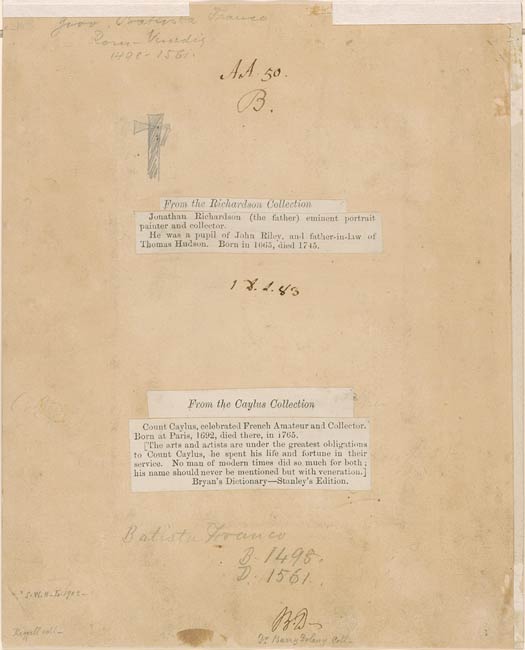 Franco
Rom - Venedig
1498-1561.
AA. 50.
B.
From the Richardson Collection
Jonathan Richardson (the father) eminent portrait
painter and collector.
He was a pupil of John Riley, and father-in-law of
Thomas Hudson. Born in 1665, died 1745.
83
From the Caylus Collection
Count Caylus, celebrated French Amateur and Collector.
Born at Paris, 1692, died there, in 1765.
[The arts and artists are under the greatest obligations
to Count Caylus, he spent his life and fortune in their
service. No man of modern times did so much for both;
his name should never be mentioned but with veneration.]
Bryan's Dictionary—Stanley's Edition.
Batista Franco
B. 1498.
D. 1561.
B.D.
Dr Barry Delany Coll-
coll-